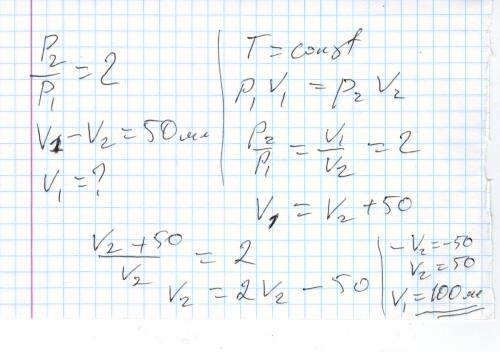 P₂/P₁ = 2
V₁ − V₂ = 50 мл
V₁ = ?
T = const
P₁ V₁ = P₂ V₂
P₂/P₁ = V₁/V₂ = 2
V₁ = V₂ + 50
(V₂ + 50)/V₂ = 2
V₂ = 2V₂ − 50
− V₂ = −50
V₂ = 50
V₁ = 100 мл